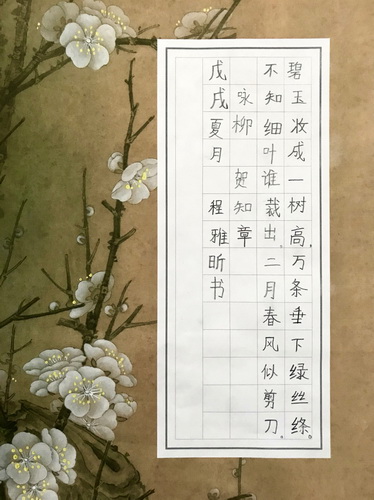 碧玉妆成一树高，万条垂下绿丝绦。
不知细叶谁裁出。二月春风似剪刀。
咏柳 贺知章
戊戌夏月 程雅昕书